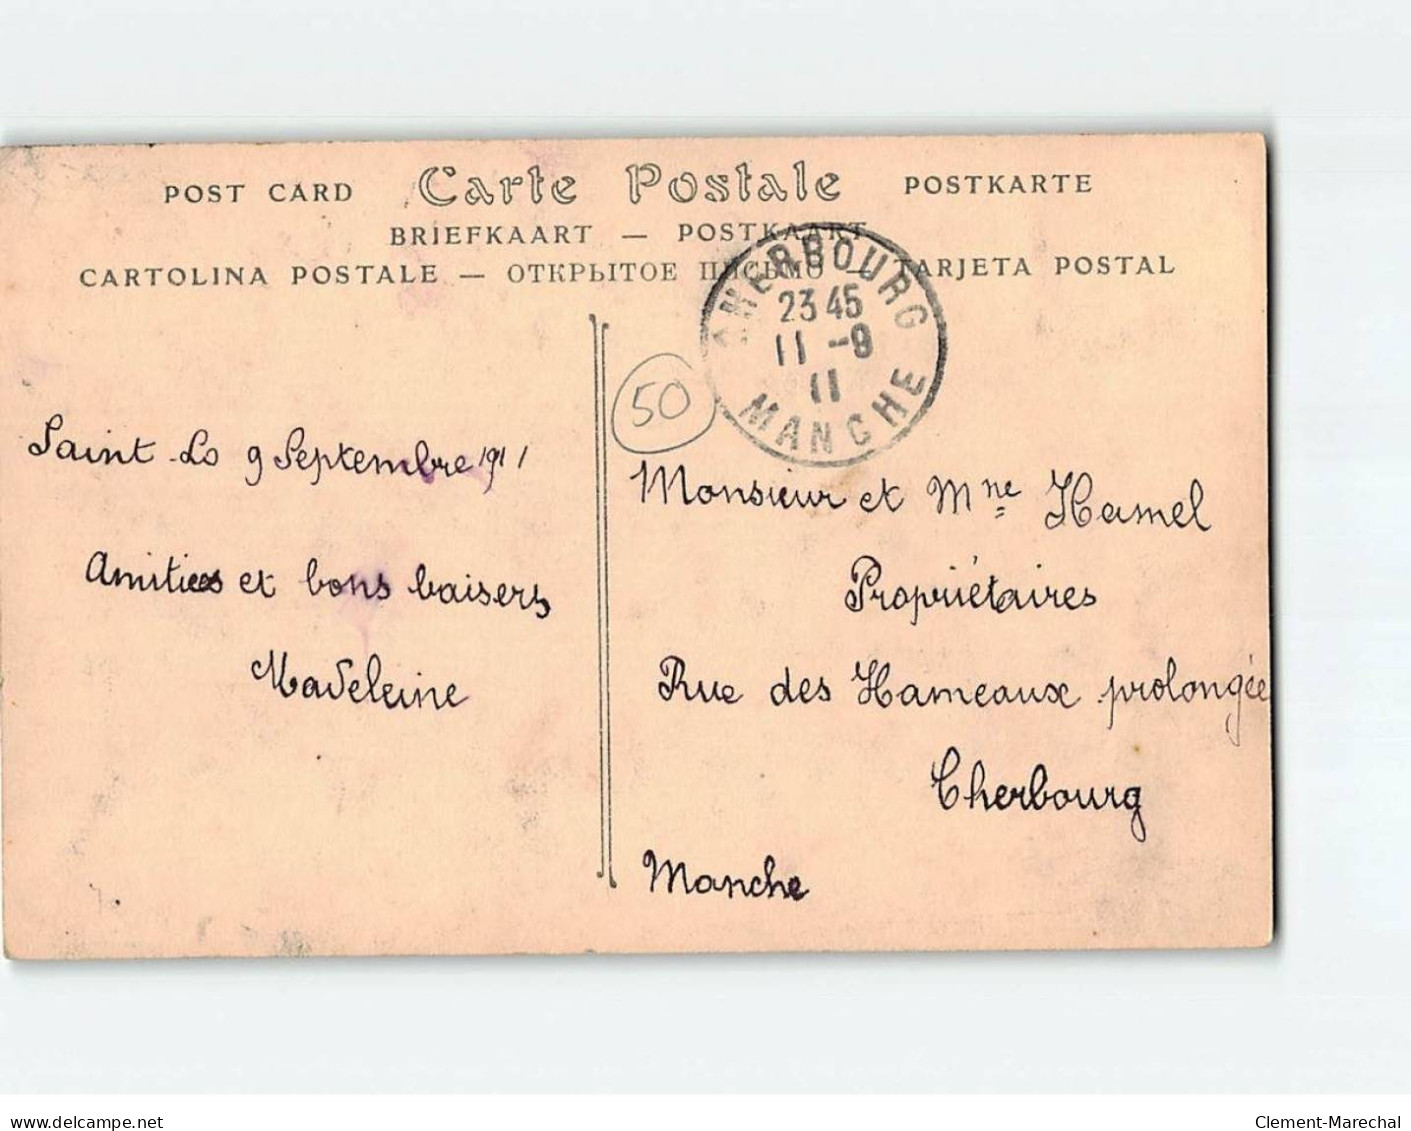 POST CARD Carte Postale POSTKARTE
BRIEFKAART — POSTKAART
CARTOLINA POSTALE — ОТКРЫТОЕ ПИСЬМО — TARJETA POSTAL
CHERBOURG
23 45
11 -9
11
MANCHE
50
Saint Lo 9 Septembre 1911
Amitiés et bons baisers
Madeleine
Monsieur et Mme Hamel
Propriétaires
Rue des Hameaux prolongée
Cherbourg
Manche
www.delcampe.net
Clement-Marechal